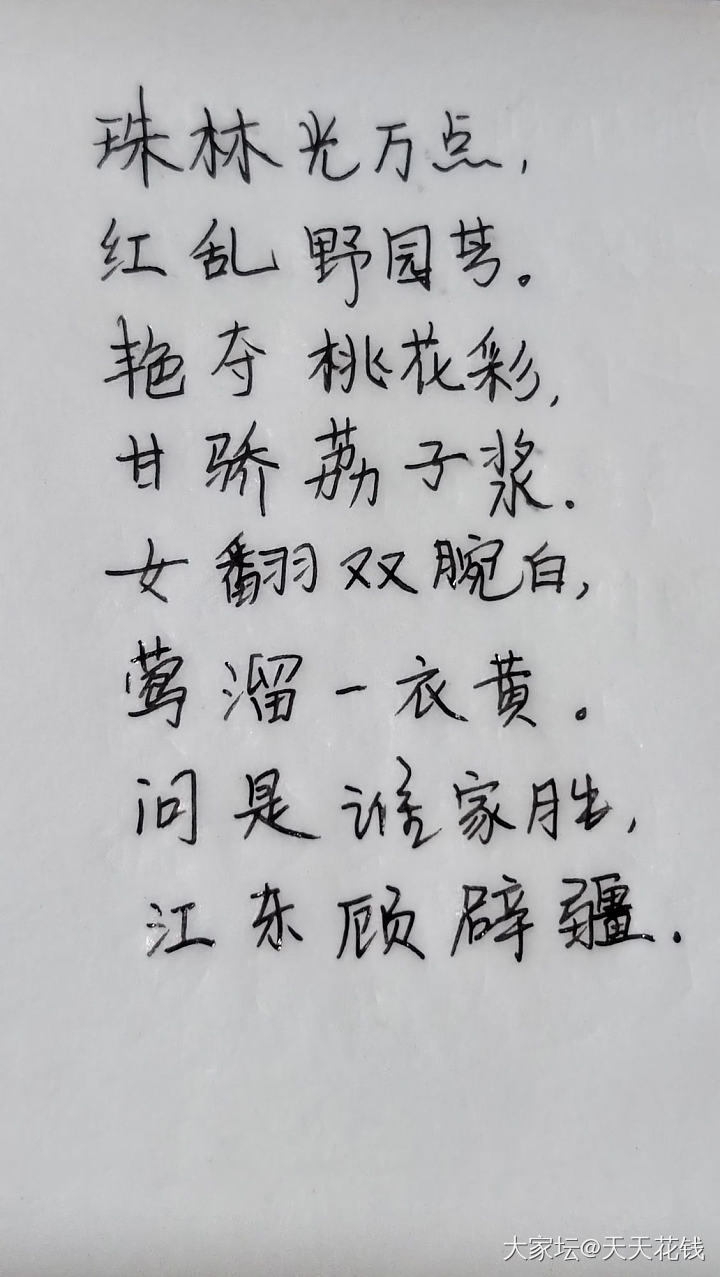 珠林光万点,
红乱野园芎。
艳夺桃花彩,
甘骄荔子浆.
女翻双腕白,
莺溜一衣黄。
问是谁家胜,
江东顾辟疆.
大家坛@天天花钱